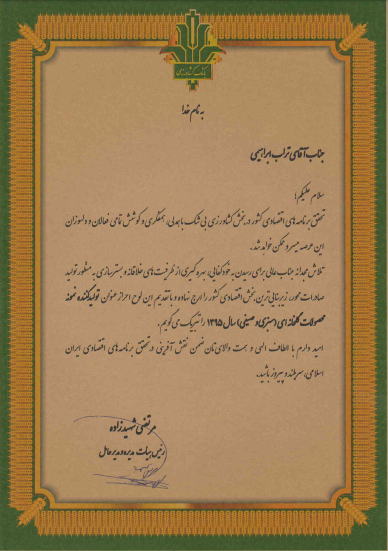 بانک کشاورزی
به نام خدا
جناب آقای تراب ابراهیمی
سلام علیکم؛
تحقق برنامه های اقتصادی کشور در بخش کشاورزی بی شک با همدلی، همفکری و کوشش تمامی فعالان و دلسوزان
این عرصه میسر و ممکن خواهد شد.
تلاش مجدانه جنابعالی برای رسیدن به خودکفایی، بهره گیری از ظرفیت های خلاقانه و بسترسازی به منظور تولید
صادرات محور، زیربنایی ترین بخش اقتصادی کشور را ارج نهاده و با تقدیم این لوح احراز عنوان تولیدکننده نمونه
محصولات گلخانه ای (سبزی و صیفی) سال ۱۳۹۵ را تبریک می گویم.
امید دارم با الطاف الهی و همت والای تان ضمن نقش آفرینی در تحقق برنامه های اقتصادی ایران
اسلامی، سربلند و پیروز باشید.
مرتضی شهیدزاده
رئیس هیات مدیره و مدیرعامل